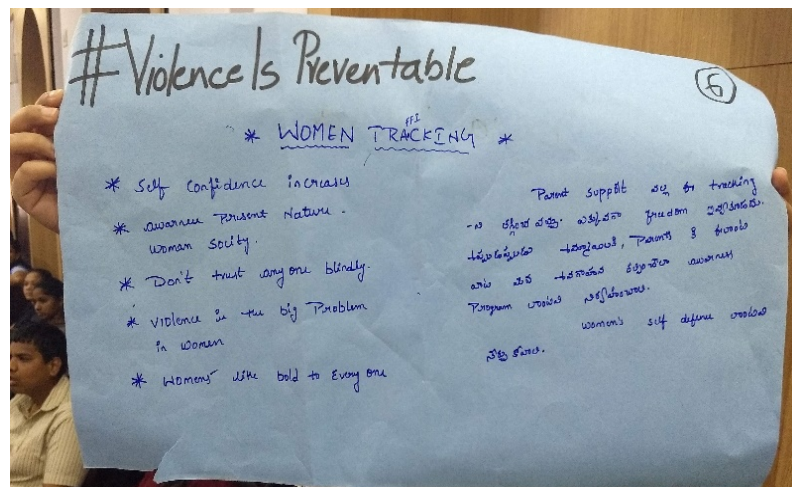 #ViolenceIs Preventable
6
* WOMEN TRACKING *
* Self Confidence increases
* awarnee Present Nature.
woman Socity.
* Don't trust any one blindly.
* violence is the big Problem
in women
* Womens like bold to Every one
Parent support వల్ల ఈ tracking
freedom ఇవ్వకూడదు.
Parents కి
awarness
Program లాంటివి నిర్వహించాలి.
women's self defense లాంటివి
నేర్చుకోవాలి.